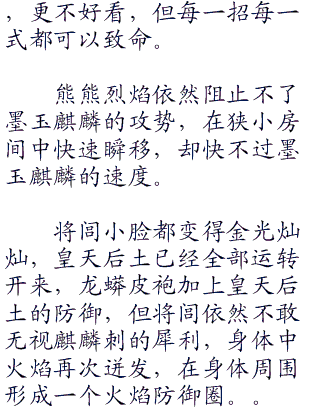 ，更不好看，但每一招每一
式都可以致命。
熊熊烈焰依然阻止不了
墨玉麒麟的攻势，在狭小房
间中快速瞬移，却快不过墨
玉麒麟的速度。
将闾小脸都变得金光灿
灿，皇天后土已经全部运转
开来，龙蟒皮袍加上皇天后
土的防御，但将闾依然不敢
无视麒麟刺的犀利，身体中
火焰再次迸发，在身体周围
形成一个火焰防御圈。。